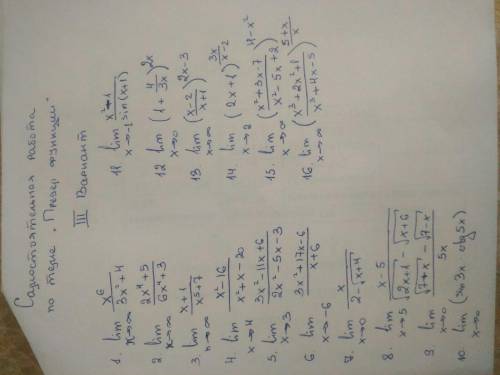 Самостоятельная работа
по теме „Предел функции"
III Вариант
1. lim x→∞ x⁶/(3x²+4)
2. lim x→∞ (2x⁴+5)/(6x⁴+3)
3. lim x→∞ (x+1)/(x⁵+7)
4. lim x→4 (x²-16)/(x²+x-20)
5. lim x→3 (3x²-11x+6)/(2x²-5x-3)
6 lim x→-6 (3x²+17x-6)/(x+6)
7. lim x→0 x/(2-√(x+4))
8. lim x→5 (x-5)/(√(2x+1)-√(x+6))
9 lim x→0 (√(7+x)-√(7-x))/5x
10 lim x→0 (sin3x · ctg5x)
11 lim x→-1 (x³+1)/sin(x+1)
12 lim x→∞ (1+4/3x)^2x
13 lim x→∞ ((x-2)/(x+1))^2x-3
14 lim x→2 (2x+1)^3x/(x-2)
15. lim x→∞ ((x²+3x-7)/(x²-5x+2))^4-x²
16. lim x→∞ ((x³+2x²+1)/(x³+4x-5))^(5+x)/x